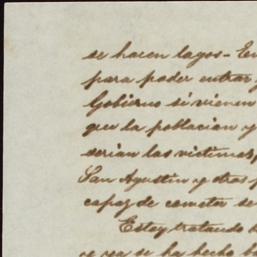 se hacen lagos - En
para poder entrar
Gobierno si vienen
que la poblacion y
serian las victimas,
San Agustin y otros
capaz de cometer se
Estoy tratando d
se ha hecho